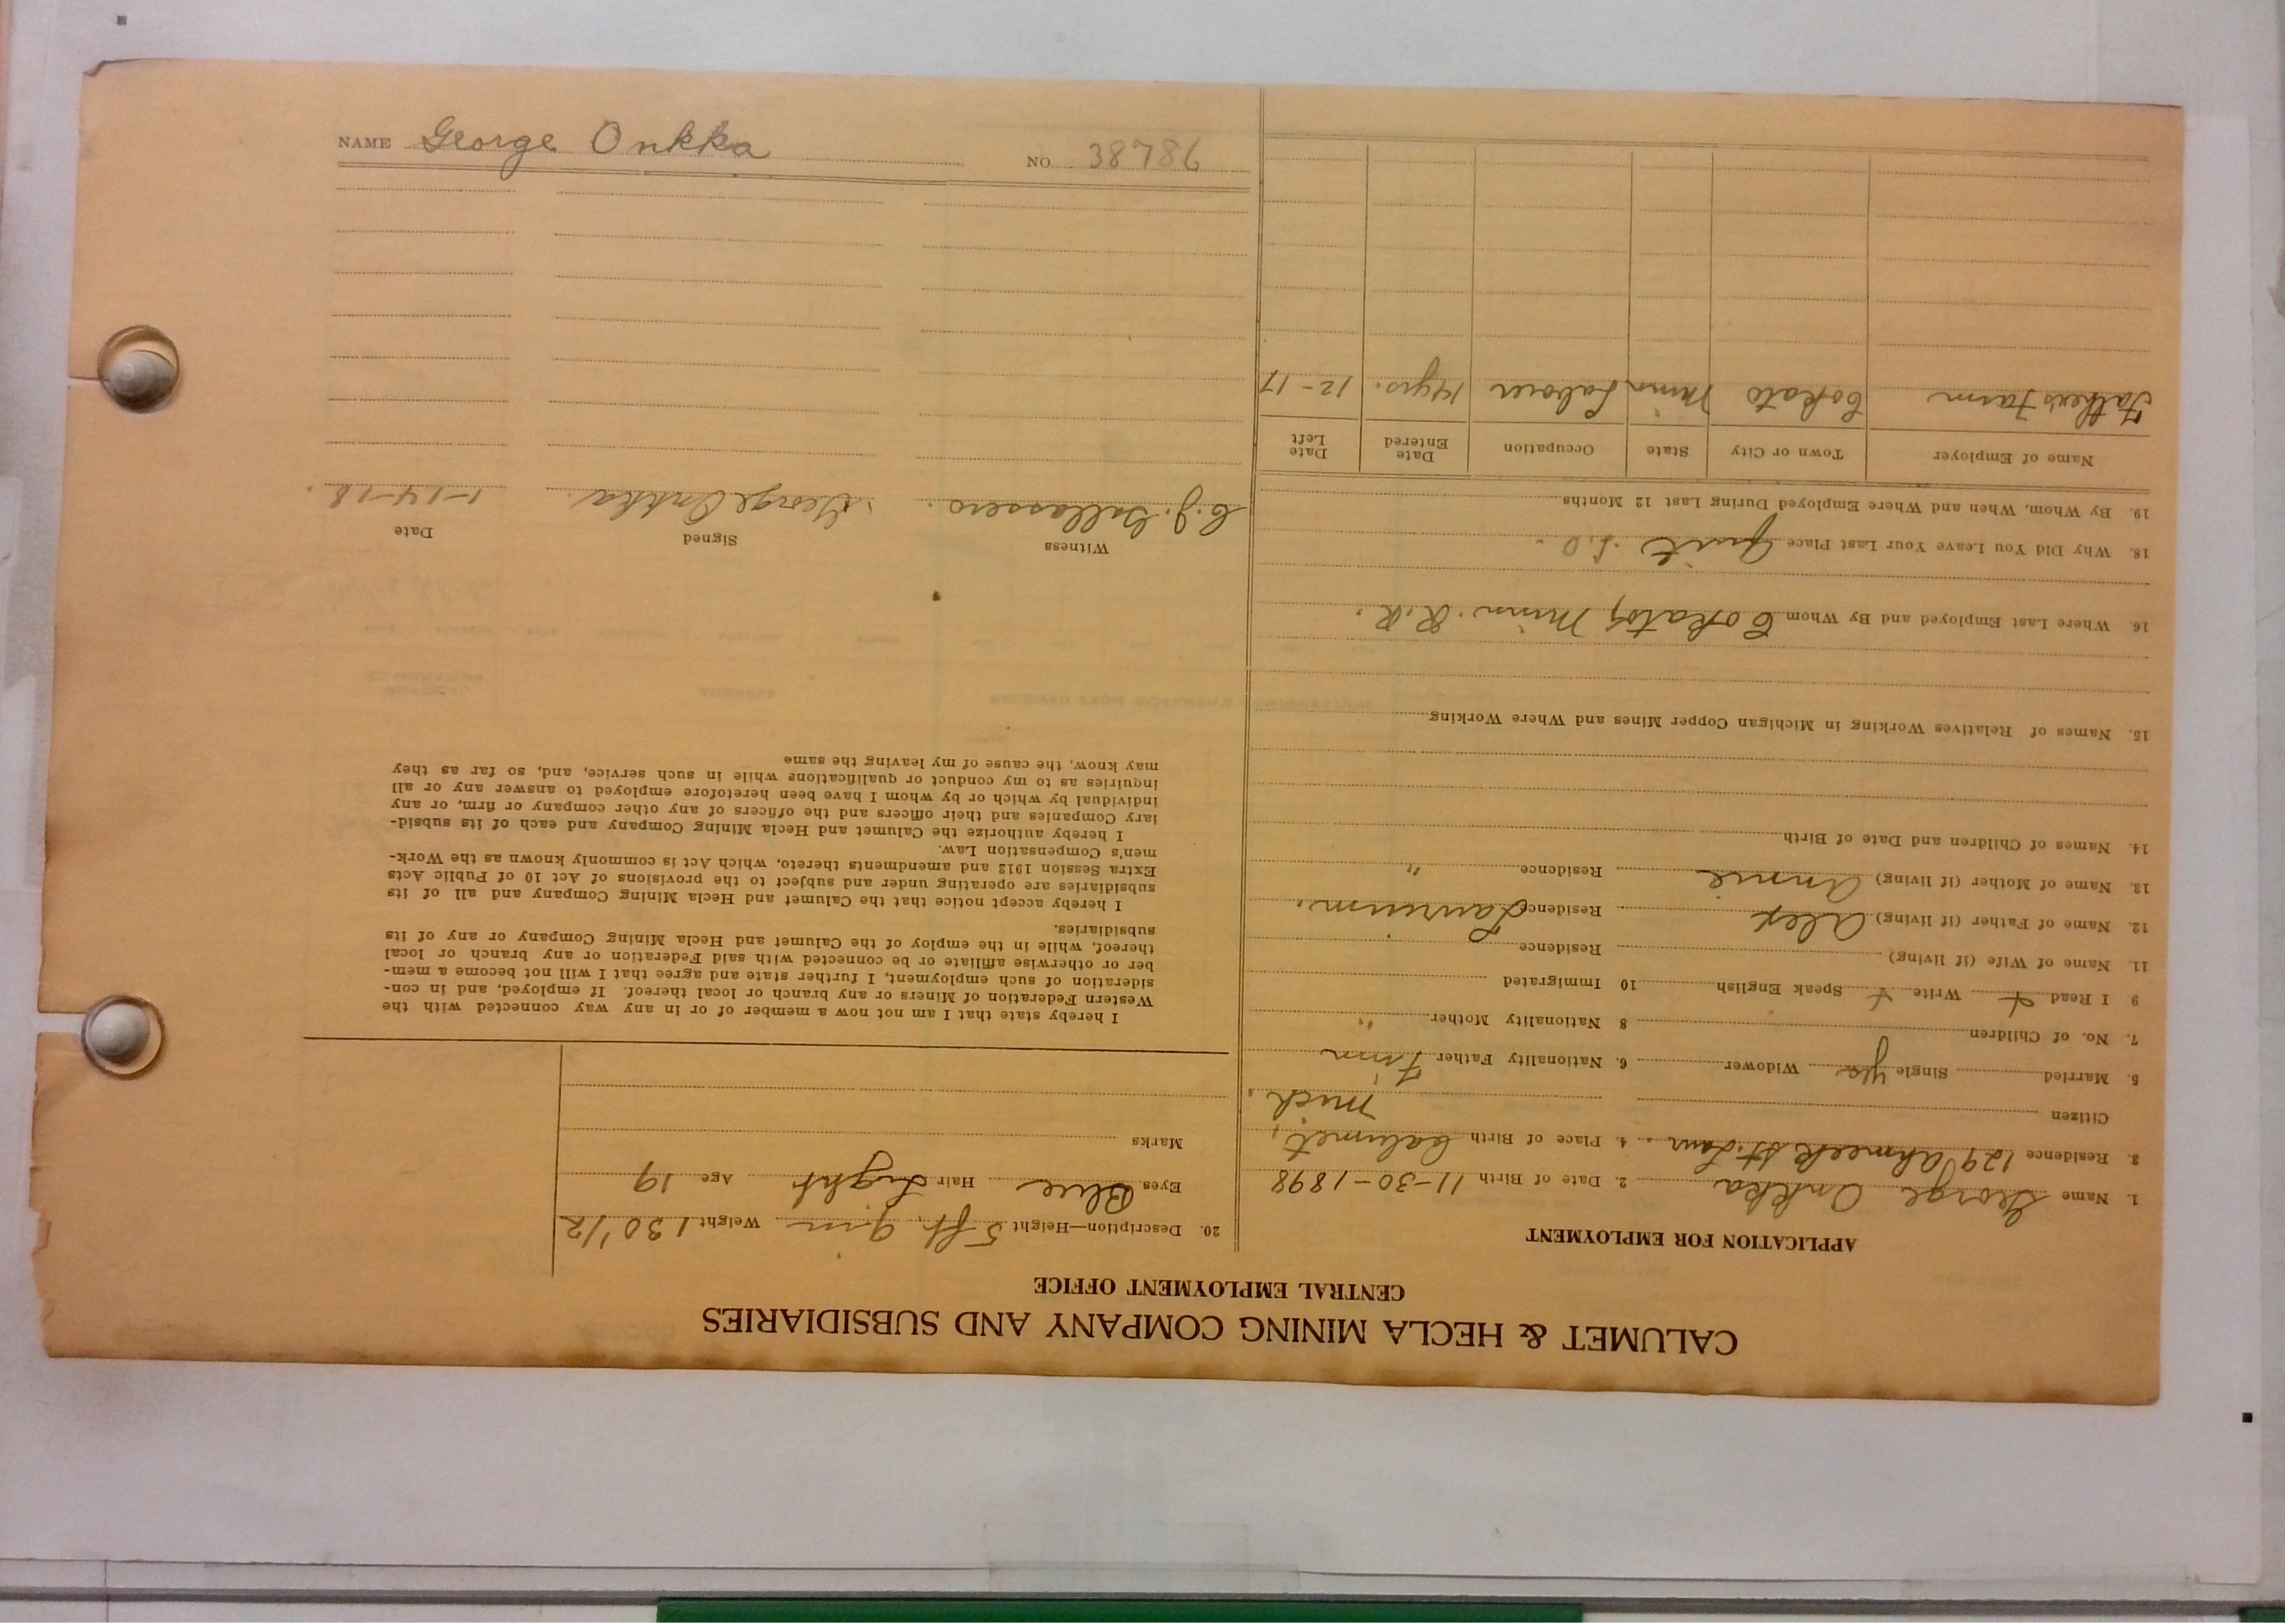 CALUMET & HECLA MINING COMPANY AND SUBSIDIARIES
CENTRAL EMPLOYMENT OFFICE
APPLICATION FOR EMPLOYMENT
1. Name George Onkka 2. Date of Birth 11-30-1898
3. Residence 129 Ahmeek St. Laur. 4. Place of Birth Calumet,
Citizen Mich.
5. Married Single yes Widower 6. Nationality Father Finn
7. No. of Children 8 Nationality Mother "
9 I Read + Write + Speak English 10 Immigrated
11. Name of Wife (if living) Residence
12. Name of Father (if living) Alex Residence Laurium.
13. Name of Mother (if living) Annie Residence "
14. Names of Children and Date of Birth
15. Names of Relatives Working in Michigan Copper Mines and Where Working
16. Where Last Employed and By Whom Cokato, Minn. R.R.
18. Why Did You Leave Your Last Place Quit
19. By Whom, When and Where Employed During Last 12 Months
Name of Employer Town or City State Occupation Date Entered Date Left
Father's Farm Cokato Minn Laborer 14 yrs. 12-17
20. Description—Height 5 ft. 9 in Weight 130 1/2
Eyes Blue Hair Light Age 19
Marks
I hereby state that I am not now a member of or in any way connected with the
Western Federation of Miners or any branch or local thereof. If employed, and in con-
sideration of such employment, I further state and agree that I will not become a mem-
ber or otherwise affiliate or be connected with said Federation or any branch or local
thereof, while in the employ of the Calumet and Hecla Mining Company or any of its
subsidiaries.
I hereby accept notice that the Calumet and Hecla Mining Company and all of its
subsidiaries are operating under and subject to the provisions of Act 10 of Public Acts
Extra Session 1912 and amendments thereto, which Act is commonly known as the Work-
men's Compensation Law.
I hereby authorize the Calumet and Hecla Mining Company and each of its subsid-
iary Companies and their officers and the officers of any other company or firm, or any
individual by which or by whom I have been heretofore employed to answer any or all
inquiries as to my conduct or qualifications while in such service, and, so far as they
may know, the cause of my leaving the same
Witness Signed Date
C.J. George Onkka 1-14-18.
NAME George Onkka NO. 38786